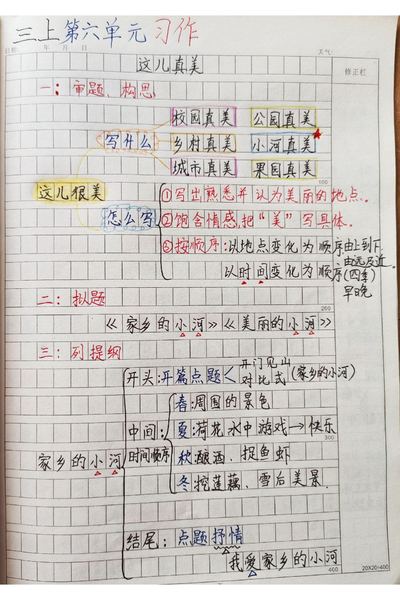 三上第六单元 习作
年 月 日 天气:
这儿真美
修正栏
一:审题、构思
校园真美 公园真美
写什么 乡村真美 小河真美
城市真美 果园真美
100
这儿很美
①写出熟悉并认为美丽的地点.
怎么写 ②饱含情感把“美”写具体.
③按顺序:以地点变化为顺序 由上到下、由远及近.
以时间变化为顺序(四季 早晚
二:拟题
200
《家乡的小河》《美丽的小河》
三:列提纲
开头:开篇点题 开门见山 对比式 (家乡的小河)
春:周围的景色
中间: 夏:荷花水中游戏→快乐
300
家乡的小河 时间顺序 秋 酿酒、捉鱼虾
冬 挖莲藕、雪后美景.
结尾:点题抒情
我爱家乡的小河
400
20X20=400